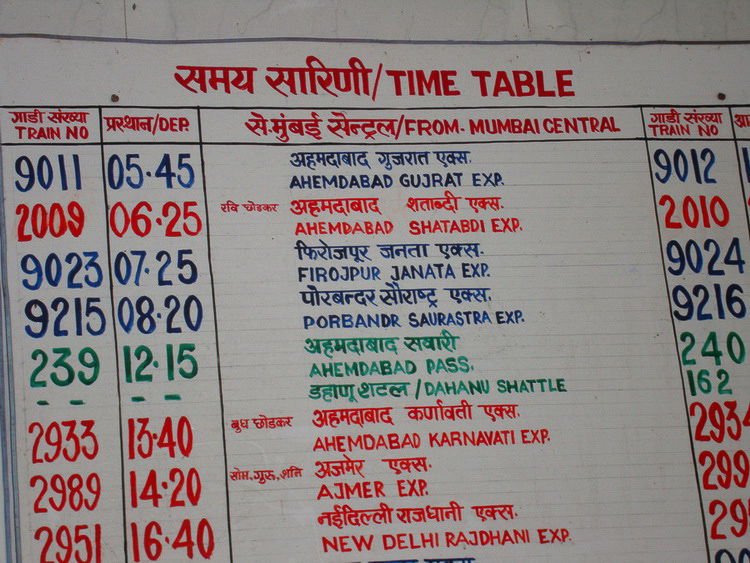 समय सारिणी/TIME TABLE
गाडी संख्या प्रस्थान/DEP. से.मुंबई सेन्ट्रल/FROM. MUMBAI CENTRAL गाडी संख्या
TRAIN NO TRAIN NO
9011 05.45 अहमदाबाद गुजरात एक्स. 9012
AHEMDABAD GUJRAT EXP.
2009 06.25 रवि छोडकर अहमदाबाद शताब्दी एक्स. 2010
AHEMDABAD SHATABDI EXP.
9023 07.25 फिरोजपूर जनता एक्स. 9024
FIROJPUR JANATA EXP.
9215 08.20 पोरबन्दर सौराष्ट्र एक्स. 9216
PORBANDR SAURASTRA EXP.
239 12.15 अहमदाबाद सवारी 240
AHEMDABAD PASS.
-- -- डहाणू शटल/DAHANU SHATTLE 162
2933 13.40 बुध छोडकर अहमदाबाद कर्णावती एक्स. 293
AHEMDABAD KARNAVATI EXP.
2989 14.20 सोम, गुरु, शनि अजमेर एक्स. 299
AJMER EXP.
2951 16.40 नईदिल्ली राजधानी एक्स. 29
NEW DELHI RAJDHANI EXP.